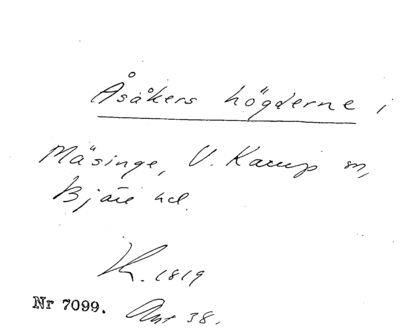 Åsåkers högderne i
Mäsinge, V. Karup sn,
Bjäre hd.
1819
Nr 7099. 38.